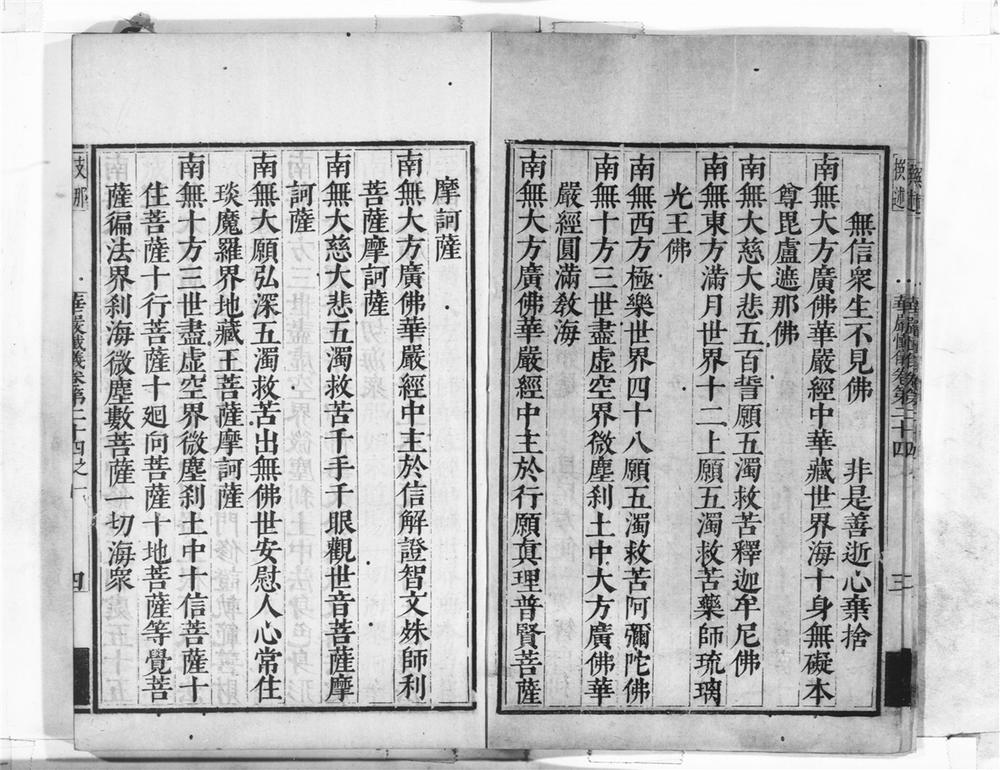 無信衆生不見佛　非是善逝心棄捨
南無大方廣佛華嚴經中華藏世界海十身無礙本
尊毘盧遮那佛
南無大慈大悲五百誓願五濁救苦釋迦牟尼佛
南無東方滿月世界十二上願五濁救苦藥師琉璃
光王佛
南無西方極樂世界四十八願五濁救苦阿彌陀佛
南無十方三世盡虛空界微塵刹土中大方廣佛華
嚴經圓滿敎海
南無大方廣佛華嚴經中主於行願眞理普賢菩薩
摩訶薩
南無大方廣佛華嚴經中主於信解證智文殊師利
菩薩摩訶薩
南無大慈大悲五濁救苦千手千眼觀世音菩薩摩
訶薩
南無大願弘深五濁救苦出無佛世安慰人心常住
琰魔羅界地藏王菩薩摩訶薩
南無十方三世盡虛空界微塵刹土中十信菩薩十
住菩薩十行菩薩十廻向菩薩十地菩薩等覺菩
薩徧法界刹海微塵數菩薩一切海衆
華嚴懺儀卷第二十四之一
四